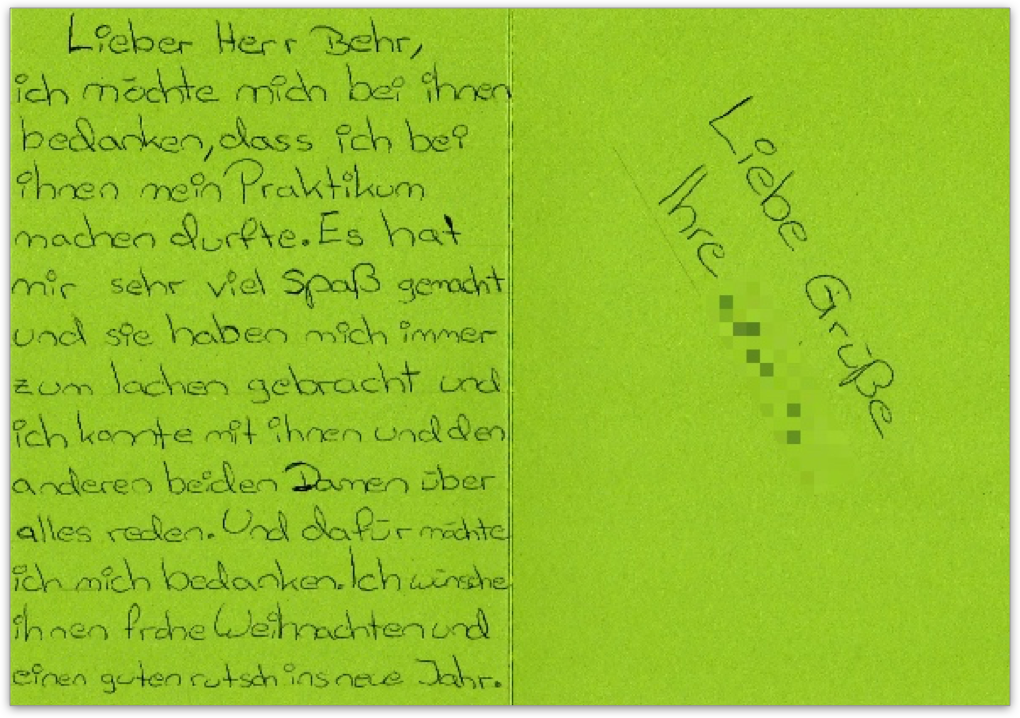 Lieber Herr Behr,
ich möchte mich bei ihnen
bedanken, dass ich bei
ihnen mein Praktikum
machen durfte. Es hat
mir sehr viel Spaß gemacht
und sie haben mich immer
zum lachen gebracht und
ich konnte mit ihnen und den
anderen beiden Damen über
alles reden. Und dafür möchte
ich mich bedanken. Ich wünsche
ihnen frohe Weihnachten und
einen guten rutsch ins neue Jahr.
Liebe Grüße
Ihre